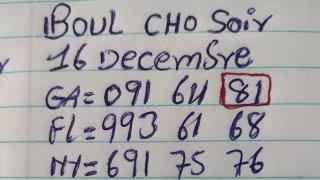 BOUL CHO Soir
16 Decembre
GA= 091 64 81
FL= 993 61 68
NY= 691 75 76